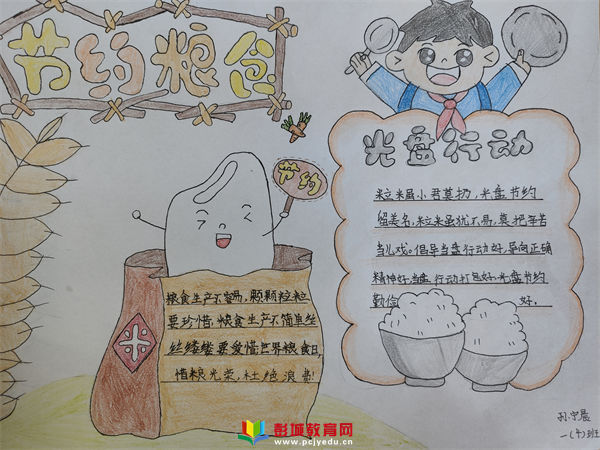 节约粮食
节约
光盘行动
粒米虽小君莫扔,光盘节约
留美名,粒米虽犹不易,莫把辛苦
当儿戏。倡导当盘行动好,导向正确
精神好当盘行动打包好光盘节约
勤俭 好。
粮食生产不容易,颗颗粒粒
要珍惜,粮食生产不简单丝
丝缕缕要爱惜世界粮食日,
惜粮光荣,杜绝浪费!
米
孙宇晨
一(4)班
彭城教育网
www.pcjyedu.cn